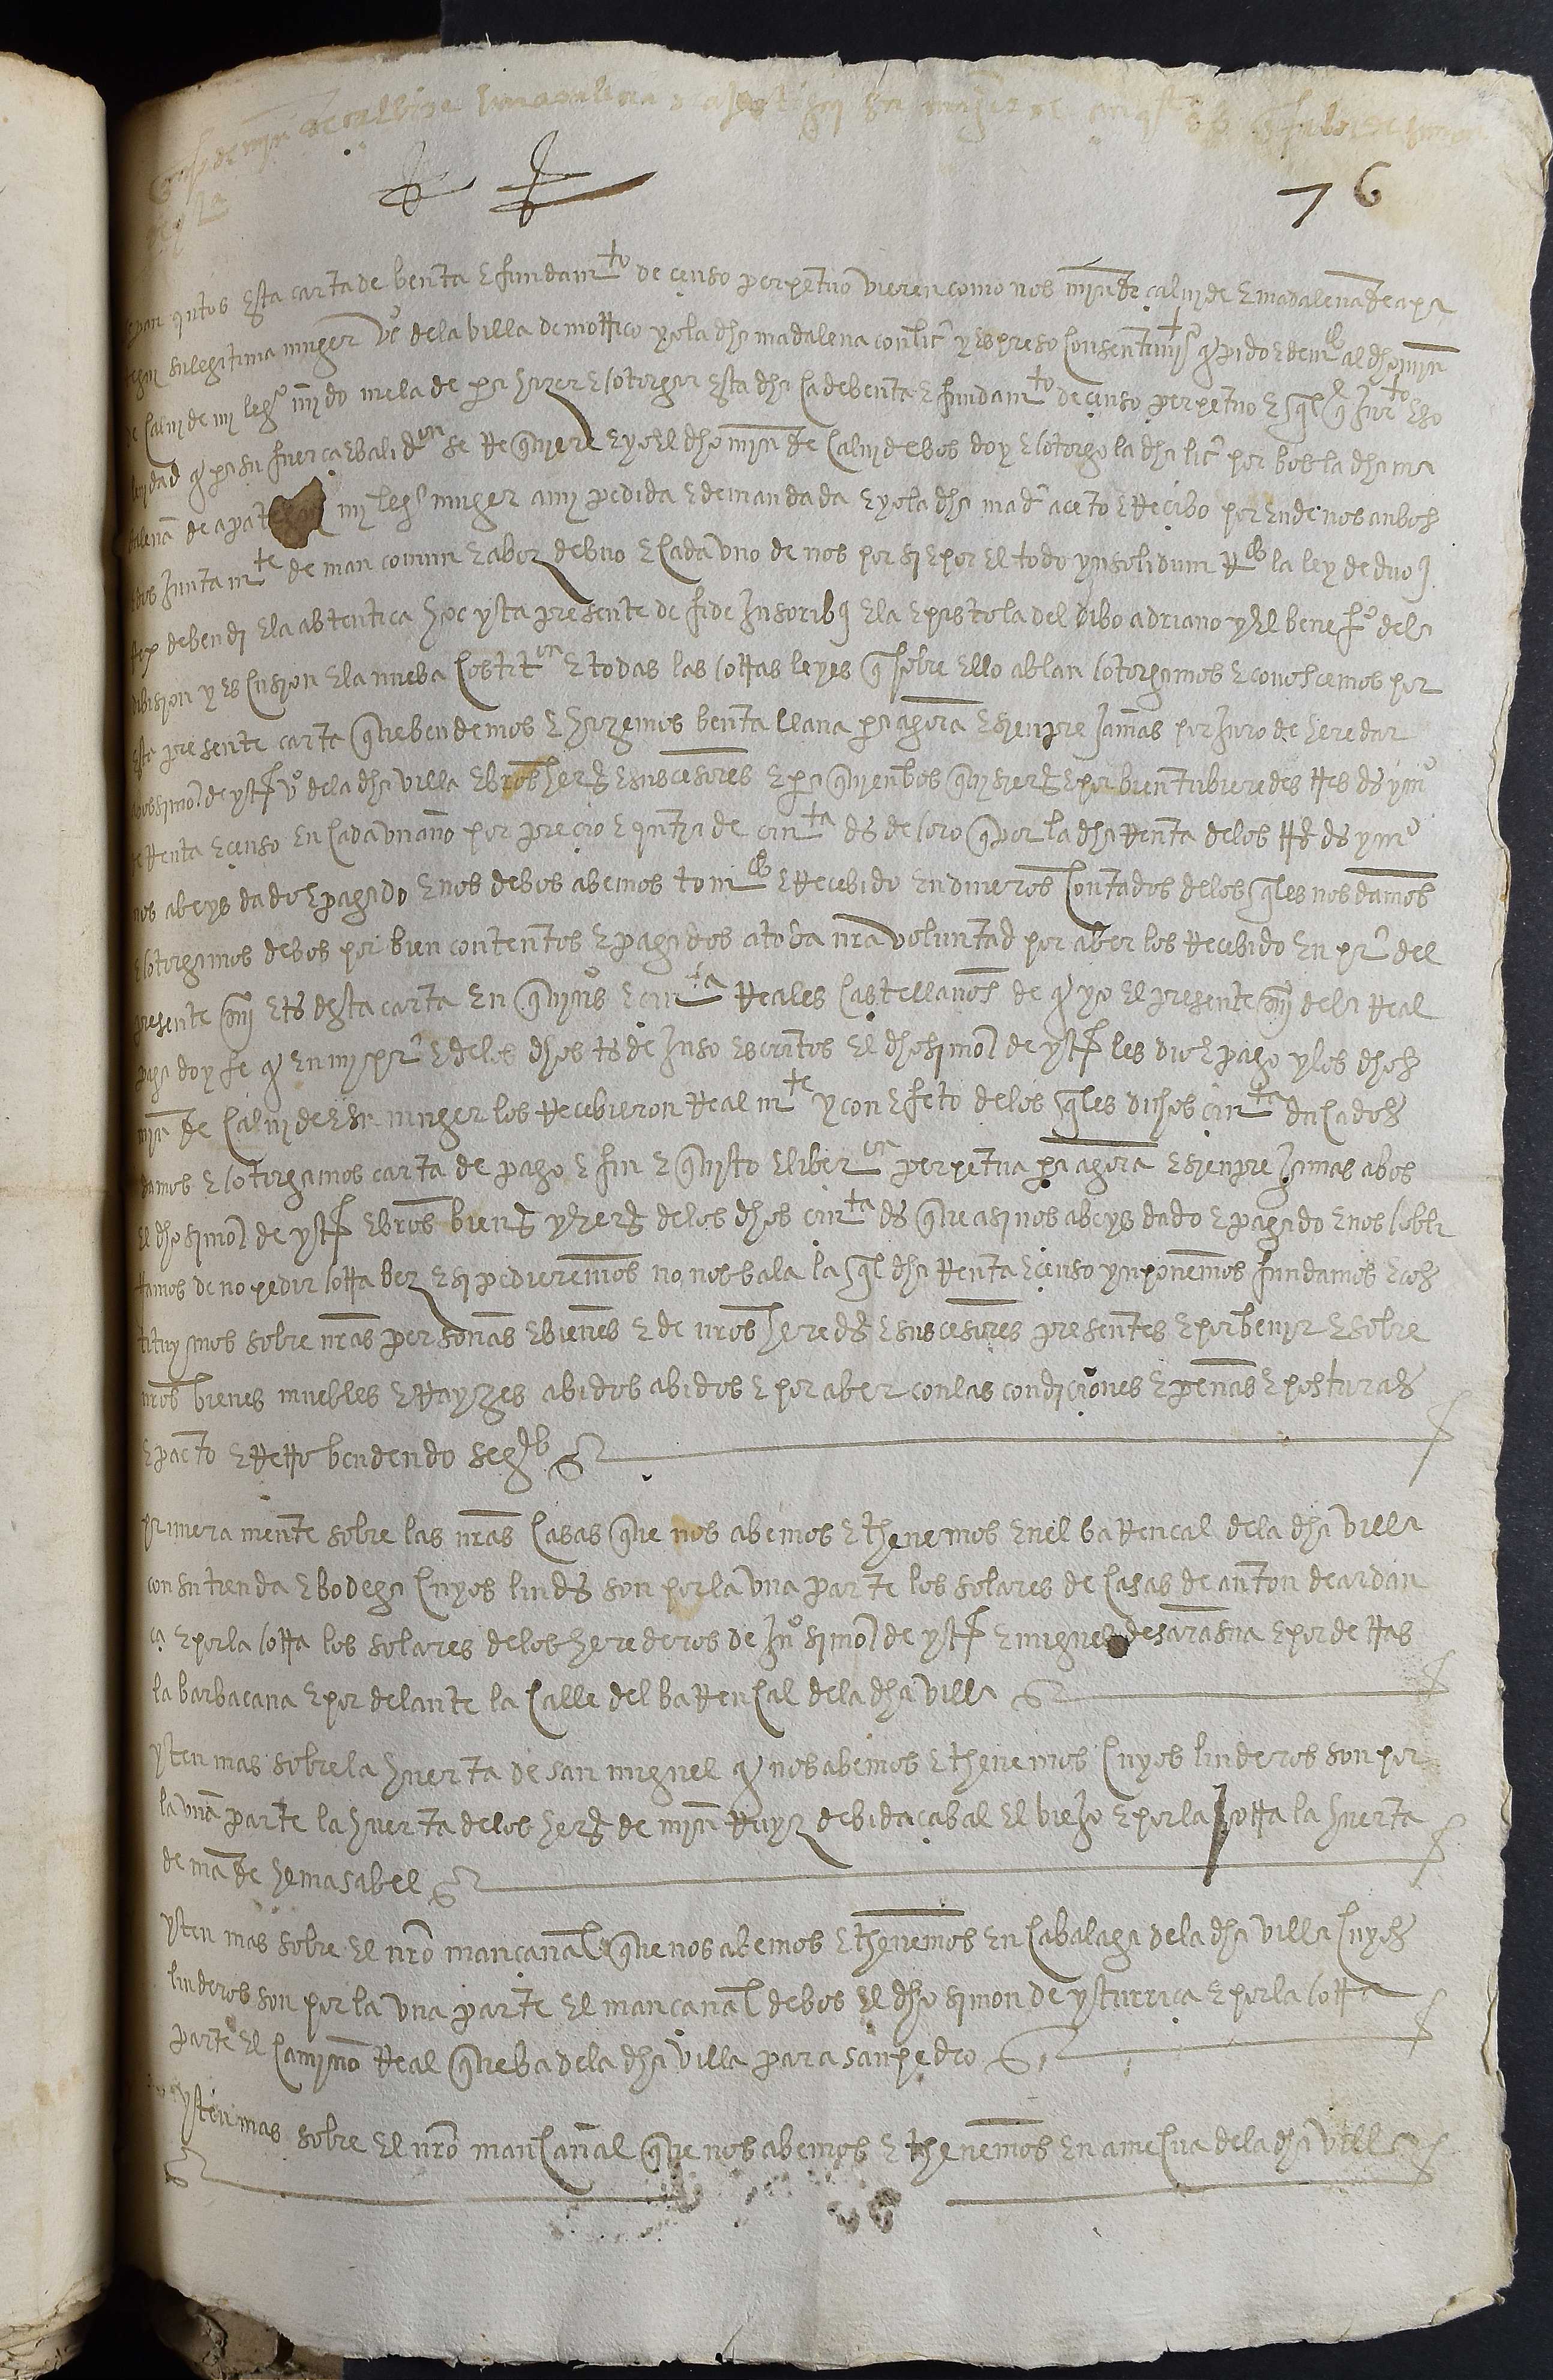 76
quntos esta carta de benta e fundamto de çenso perpetuo vieren como nos min de calvide e madalena de apa
tegui su legitima muger vos de la villa de motrico yo la dha madalena con liçª y espreso consentimyº q pido e demdo al dho min
de calvide mi legº mido me la de pa hazer e otorgar esta dha ca de benta e fundamto de çenso perpetuo e
q pa su fuerça e balidon se requiere e yo el dho min de calvide bos doy e otorgo la dha liçª por bos la dha ma
dalena de apat my legª muger a my pedida e demandada e yo la dha madª açeto e Reçibo por ende nos anbos
a dos juntamte de man comun e a boz de uno e cada uno de nos por si e por el todo ynsolidum Rdo la ley de duo
Rex debendi e la abtentica hoc yta presente de fide jusoribq e la epistola del dibo adriano y el benefº de la
dibision y escusion e la nueba costiton e todas las otras leyes q sobre ello ablan otorgamos e conosçemos por
esta presente carta que bendemos e hazemos benta llana pa agora e sienpre jamas por juro de heredar
a bos simon de yst vº de la dha villa e bros herds e susçesores e pa quien bos quisierds e por bien tubieredes tres ds y mº
de Renta e çenso en cada un año por preçio e quantia de cinta ds de oro q por la dha Renta de los tres ds y mº
nos abeys dado e pagado e nos de bos abemos tomdo e Reçebido en dineros contados de los qles nos damos
e otorgamos de bos por bien contentos e pagados a toda nra voluntad por aber los Reçebido en prª del
presente esno e ts desta carta en quinios e cinta Reales castellanos de q yo el presente esno de la Real
paga doy fe q en my prª e de los dhos ts de juso escritos el dho simon de yst les dio e pago y los dhos
min de calvide e su muger los Reçebieron Realmte y con efeto de los qles dichos cinta ducados
damos e otorgamos carta de pago e fin e quito e liberon perpetua pa agora e sienpre jamas a bos
el dho simon de yst e bros biens y herds de los dhos cinta ds que asi nos abeys dado e pagado e nos obli
gamos de no pedir otra bez e si pedieremos no nos bala la qual dha Renta e çenso ynponemos fundamos e cos
tituymos sobre nras personas e bienes e de nros hereds e susçesores presentes e por benyr e sobre
nros bienes muebles e Rayzes abidos abidos e por aber con las condiçiones e penas e posturas
e pacto e Retro bendendo segte
primera mente sobre las nras casas que nos abemos e thenemos en el barrencal de la dha villa
con su tienda e bodega cuyos linds son por la una parte los solares de casas de anton de ardan
ça e por la otra los solares de los herederos de juº simon de yst e miguel de sarasua e por detras
la barbacana e por delante la calle del barrencal de la dha villa
yten mas sobre la huerta de san miguel q nos abemos e thenemos cuyos linderos son por
la una parte la huerta de los herds de min Ruyz de bidaçabal el viejo e por la otra la huerta
de ma de hemasabel
yten mas sobre el nro mançanal que nos abemos e thenemos en çabalaga de la dha villa cuyos
linderos son por la una parte el mançanal de bos el dho simon de ysturriça e por la otra
parte el camino Real que ba de la dha villa para san pedro
yten mas sobre el nro mançanal que nos abemos e thenemos en amesua de la dha villa